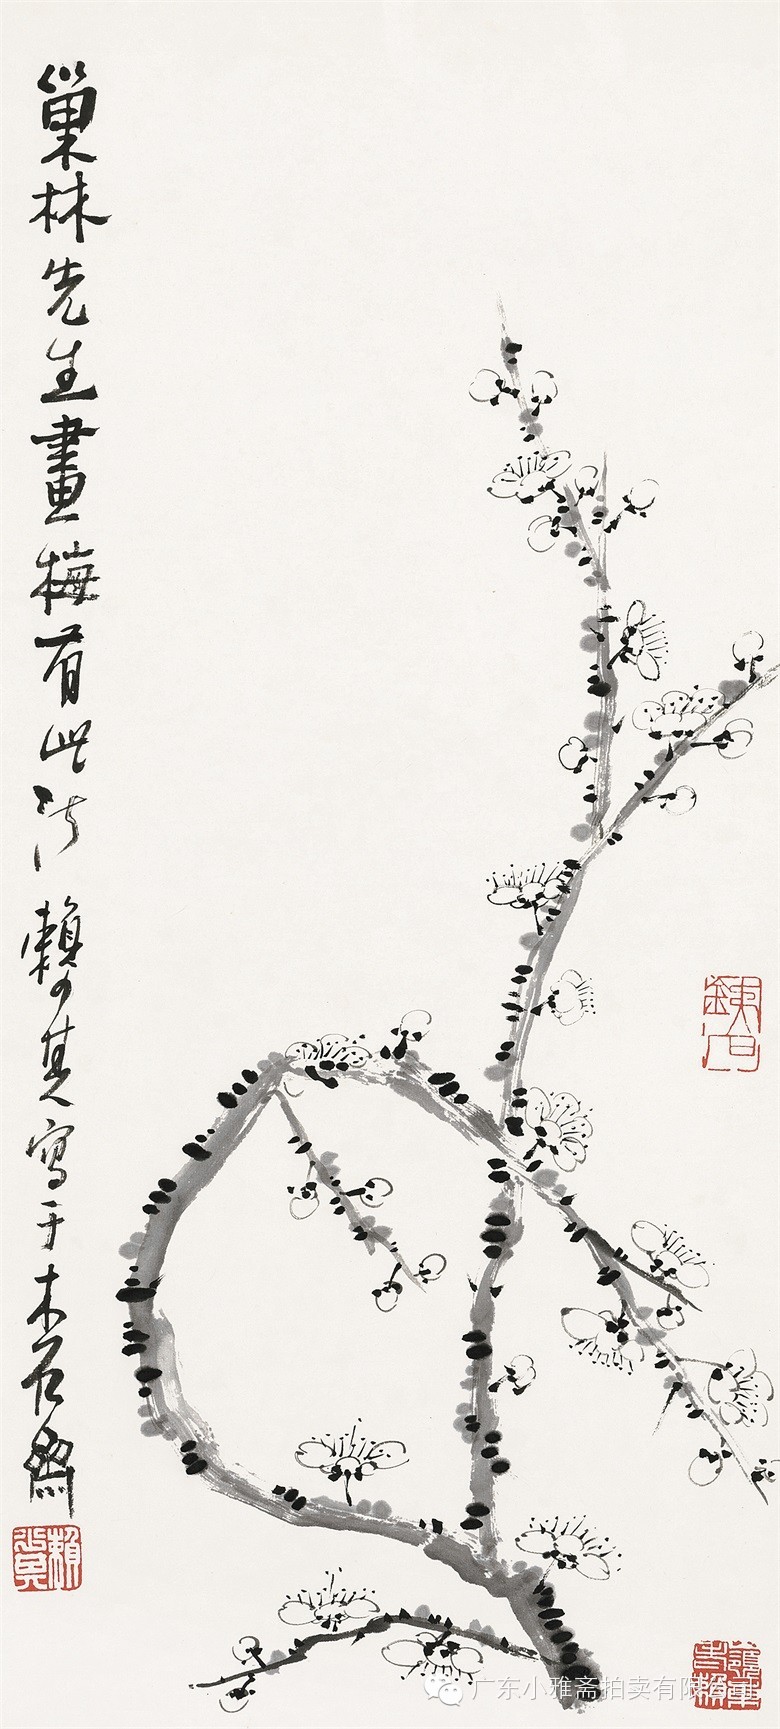 巢林先生畫梅有此法 賴少其寫于木石齋
賴少其
鐵石
广东小雅斋拍卖有限公司